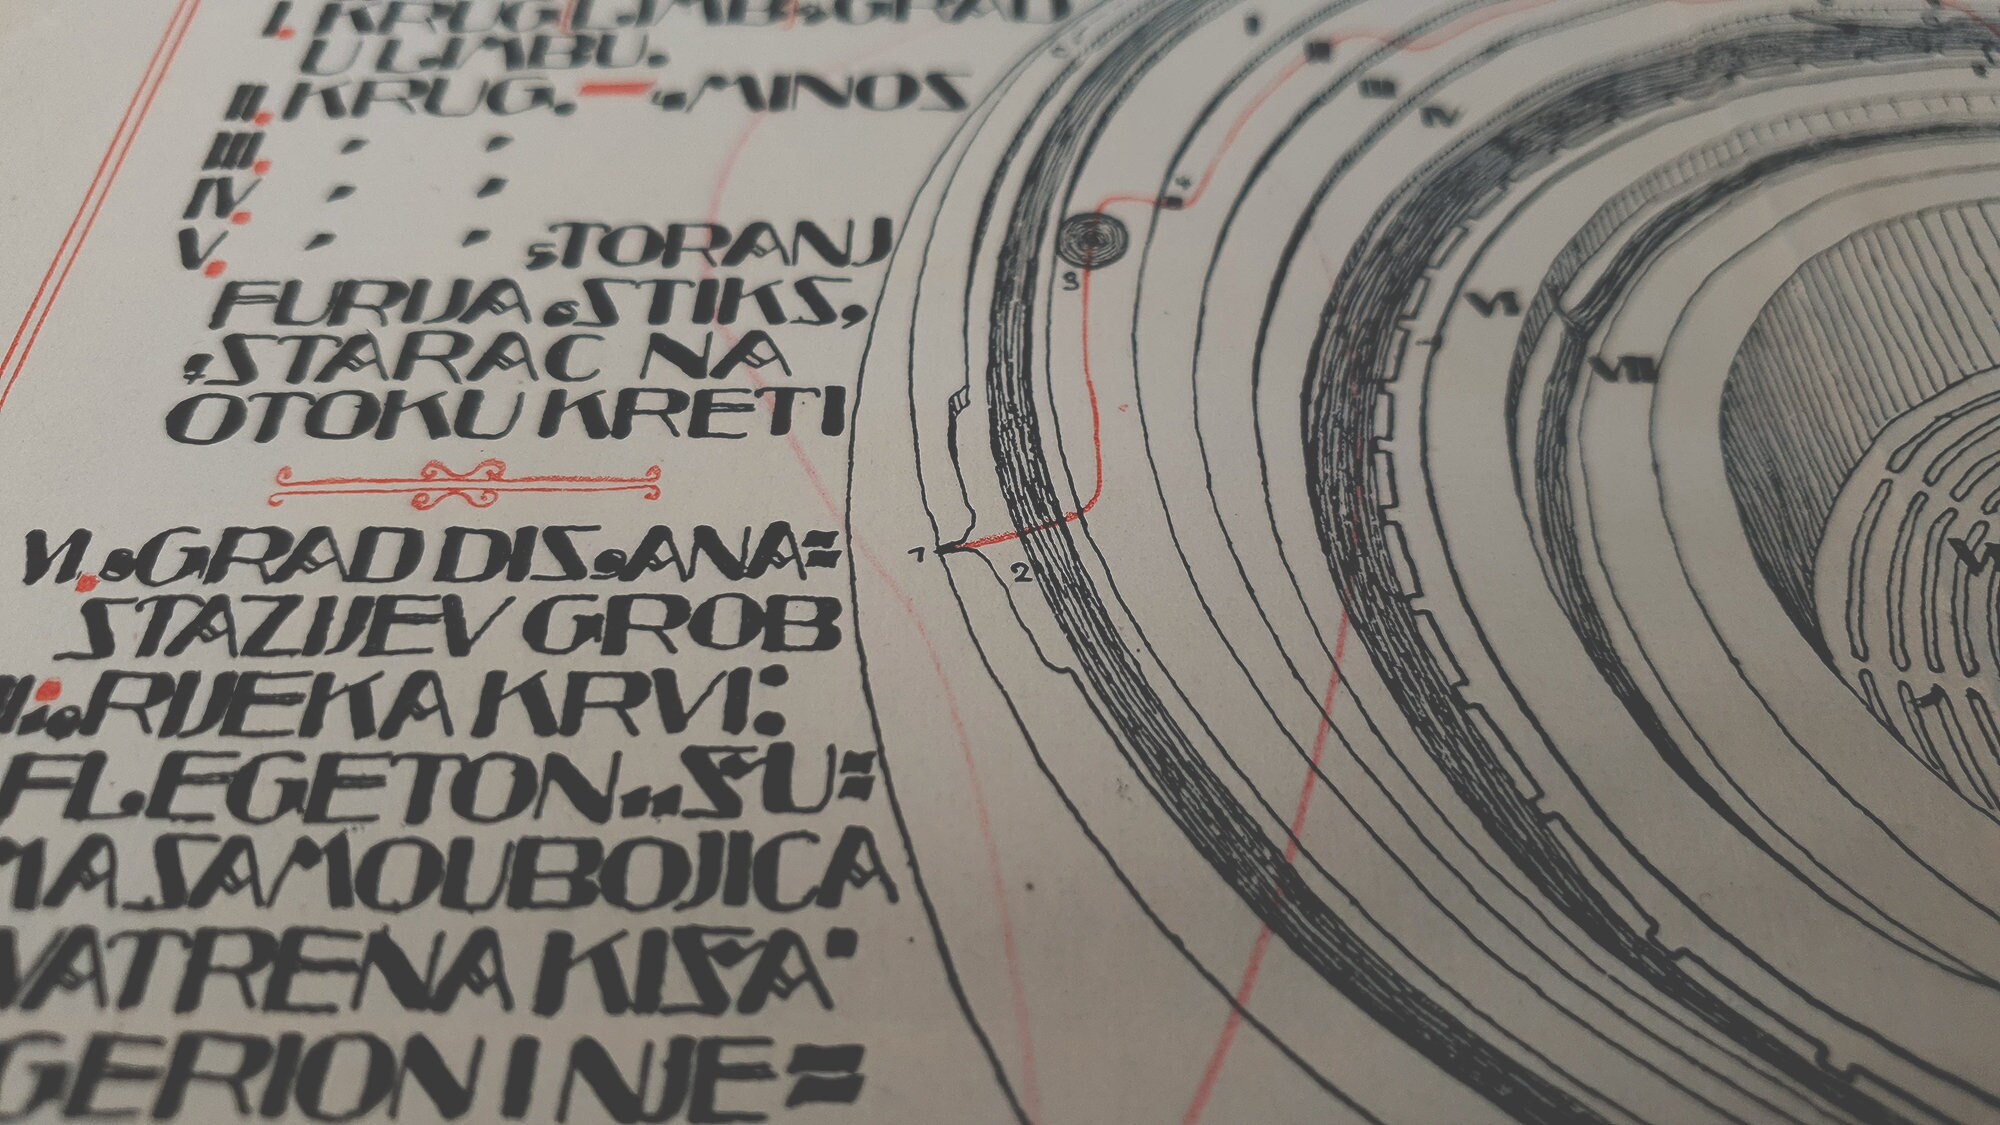 I. KRUG LIMB. 3GRAD
U LIMBU.
II. KRUG. — 4. MINOS
III. " "
IV. " "
V. " " 5 TORANJ
FURIJA 6 STIKS,
7 STARAC NA
OTOKU KRETI
VI. 8 GRAD DIS. 9 ANA=
STAZIJEV GROB
RIJEKA KRVI:
FLEGETON. 11. ŠU=
MA SAMOUBOJICA
VATRENA KIŠA
GERION I NJE=
II
III
IV
4
3
VI
VII
1
2